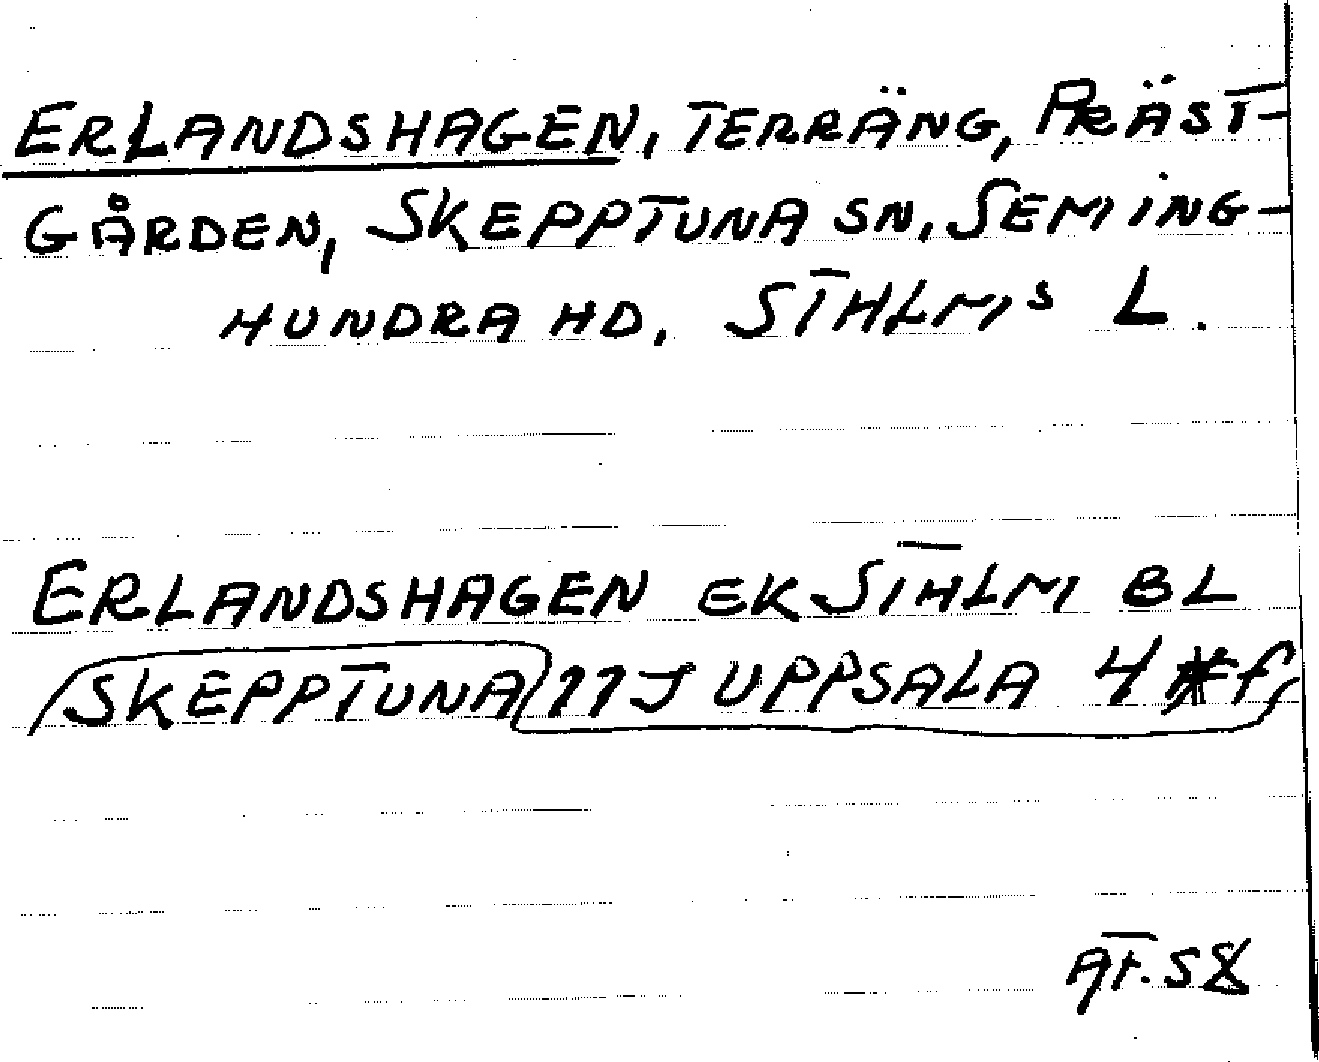 ERLANDSHAGEN, TERRÄNG, PRÄST-
GÅRDEN, SKEPPTUNA SN, SEMING-
HUNDRA HD. STHLMS L.
ERLANDSHAGEN EK STHLM BL
SKEPPTUNA 11J UPPSALA 4 * f
AT. 58